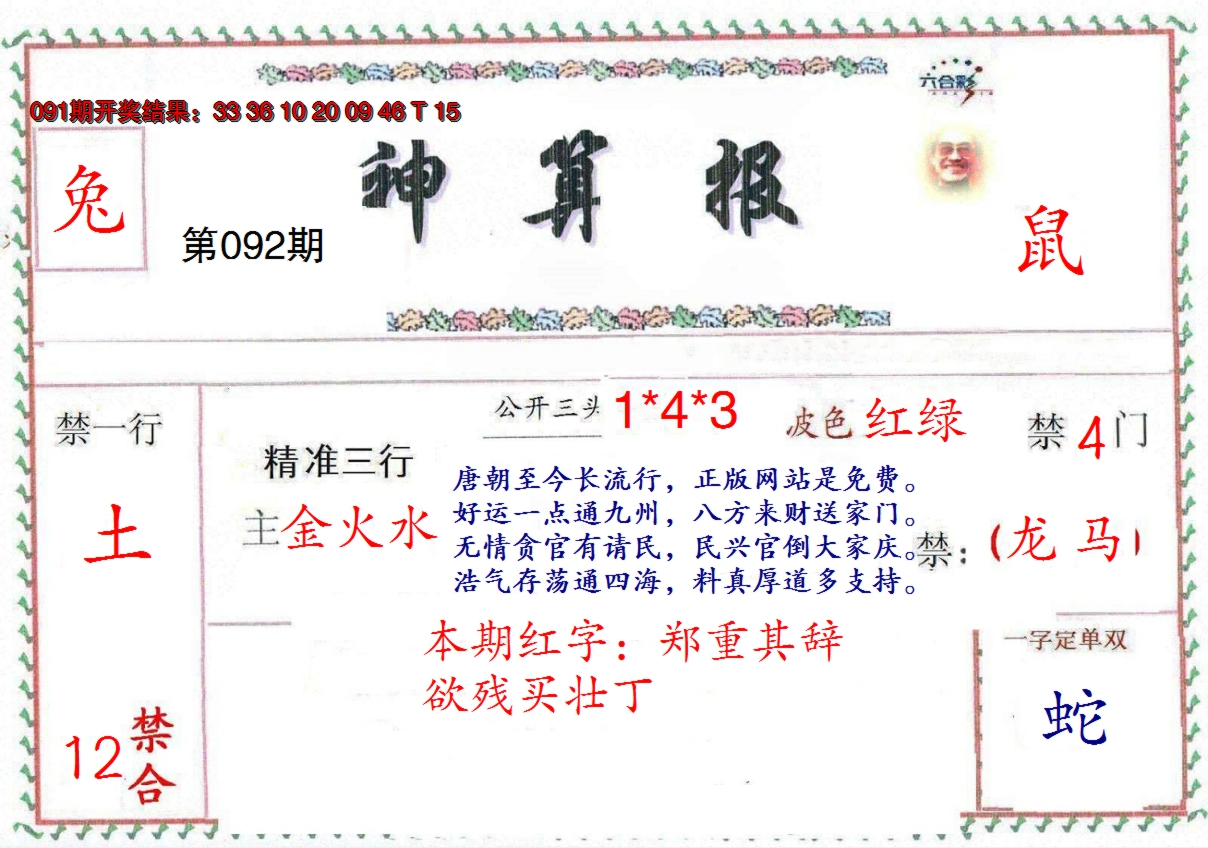 六合彩
091期开奖结果：33 36 10 20 09 46 T 15
神算报
兔
第092期
鼠
公开三头 1*4*3
波色 红绿
禁一行
禁 4 门
精准三行
主金火水
土
唐朝至今长流行，正版网站是免费。
好运一点通九州，八方来财送家门。
无情贪官有请民，民兴官倒大家庆。
浩气存荡通四海，料真厚道多支持。
禁：（龙 马）
本期红字：郑重其辞
欲残买壮丁
一字定单双
蛇
12 禁合